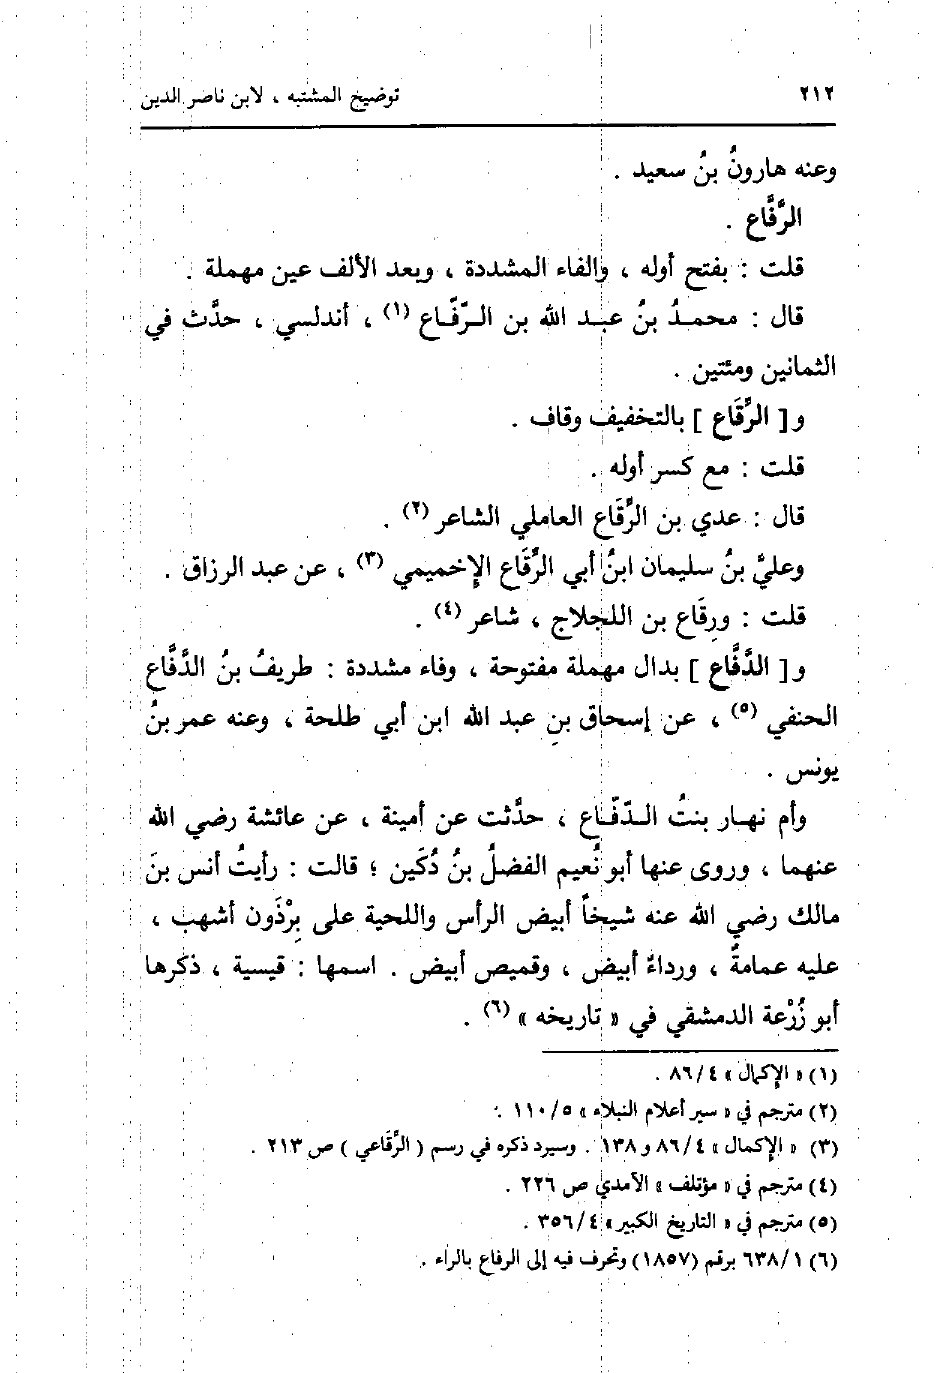 ٢١٢ توضيح المشتبه ، لابن ناصر الدين
وعنه هارونُ بنُ سعيد .
الرَّفَّاع .
قلت : بفتح أوله ، والفاء المشددة ، وبعد الألف عين مهملة .
قال : محمـدُ بنُ عبـد الله بن الـرّفّـاع (١) ، أندلسي ، حدَّث في
الثمانين ومئتين .
و [ الرِّقَاع ] بالتخفيف وقاف .
قلت : مع كسر أوله .
قال : عدي بن الرِّقَاع العاملي الشاعر (٢) .
وعليُّ بنُ سليمان ابنُ أبي الرِّقَاع الإخميمي (٣) ، عن عبد الرزاق .
قلت : ورِقَاع بن اللجلاج ، شاعر (٤) .
و [ الدَّفَّاع ] بدال مهملة مفتوحة ، وفاء مشددة : طريفُ بنُ الدَّفَّاع
الحنفي (٥) ، عن إسحاق بنِ عبد الله ابن أبي طلحة ، وعنه عمر بنُ
يونس .
وأم نهـار بنتُ الـدّفّـاع ، حدَّثت عن أمينة ، عن عائشة رضي الله
عنهما ، وروى عنها أبو نُعيم الفضلُ بنُ دُكَين ؛ قالت : رأيتُ أنس بنَ
مالك رضي الله عنه شيخاً أبيض الرأس واللحية على بِرْذَون أشهب ،
عليه عمامةٌ ، ورداءٌ أبيض ، وقميص أبيض . اسمها : قيسية ، ذكرها
أبو زُرْعة الدمشقي في « تاريخه » (٦) .
(١) « الإكمال » ٨٦/٤ .
(٢) مترجم في « سير أعلام النبلاء » ١١٠/٥ .
(٣) « الإكمال » ٨٦/٤ و ١٣٨ . وسيرد ذكره في رسم ( الرِّقَاعي ) ص ٢١٣ .
(٤) مترجم في « مؤتلف » الآمدي ص ٢٢٦ .
(٥) مترجم في « التاريخ الكبير» ٣٥٦/٤ .
(٦) ٦٣٨/١ برقم (١٨٥٧) وتحرف فيه إلى الرفاع بالراء .